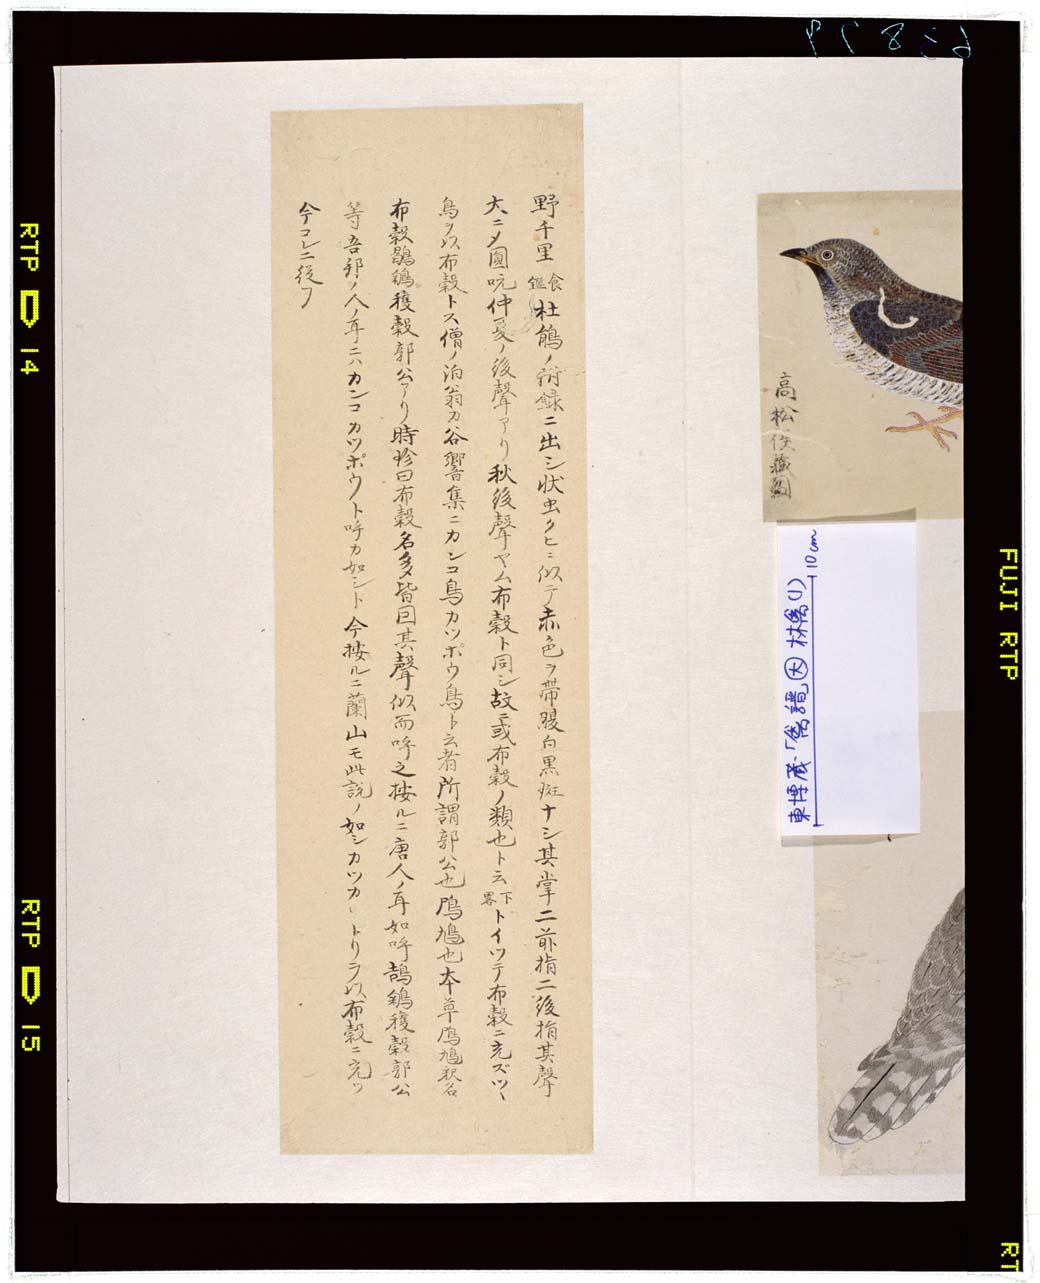 野千里食鑑杜鵑ノ附録ニ出シ状虫クヒニ似テ赤色ヲ帯腹白黒斑ナシ其掌二前指二後指其聲
大ニメ圓吭仲夏ノ後聲アリ秋後聲ヤム布穀ト同シ故ニ或布穀ノ類也ト云下畧トイツテ布穀ニ充ズツヽ
鳥ヲ以布穀トス僧ノ泊翁カ谷響集ニカンコ鳥カツポウ鳥ト云者所謂郭公也鳲鳩也本草鳲鳩釈名
布穀鴶鵴穫穀郭公アリ時珍曰布穀名多皆因其聲似而呼之按ルニ唐人ノ耳如呼鴶鵴穫穀郭公
等吾邦ノ人ノ耳ニハカンコカツポウノト呼カ如シト今按ルニ蘭山モ此説ノ如シカツカヽトリヲ以布穀ニ充ツ
今コレニ従フ
高松侯蔵圖
東博蔵・「禽譜」㊅ 林禽(1)
10cm
63879
RTP 14
RTP 15
FUJI RTP
RT